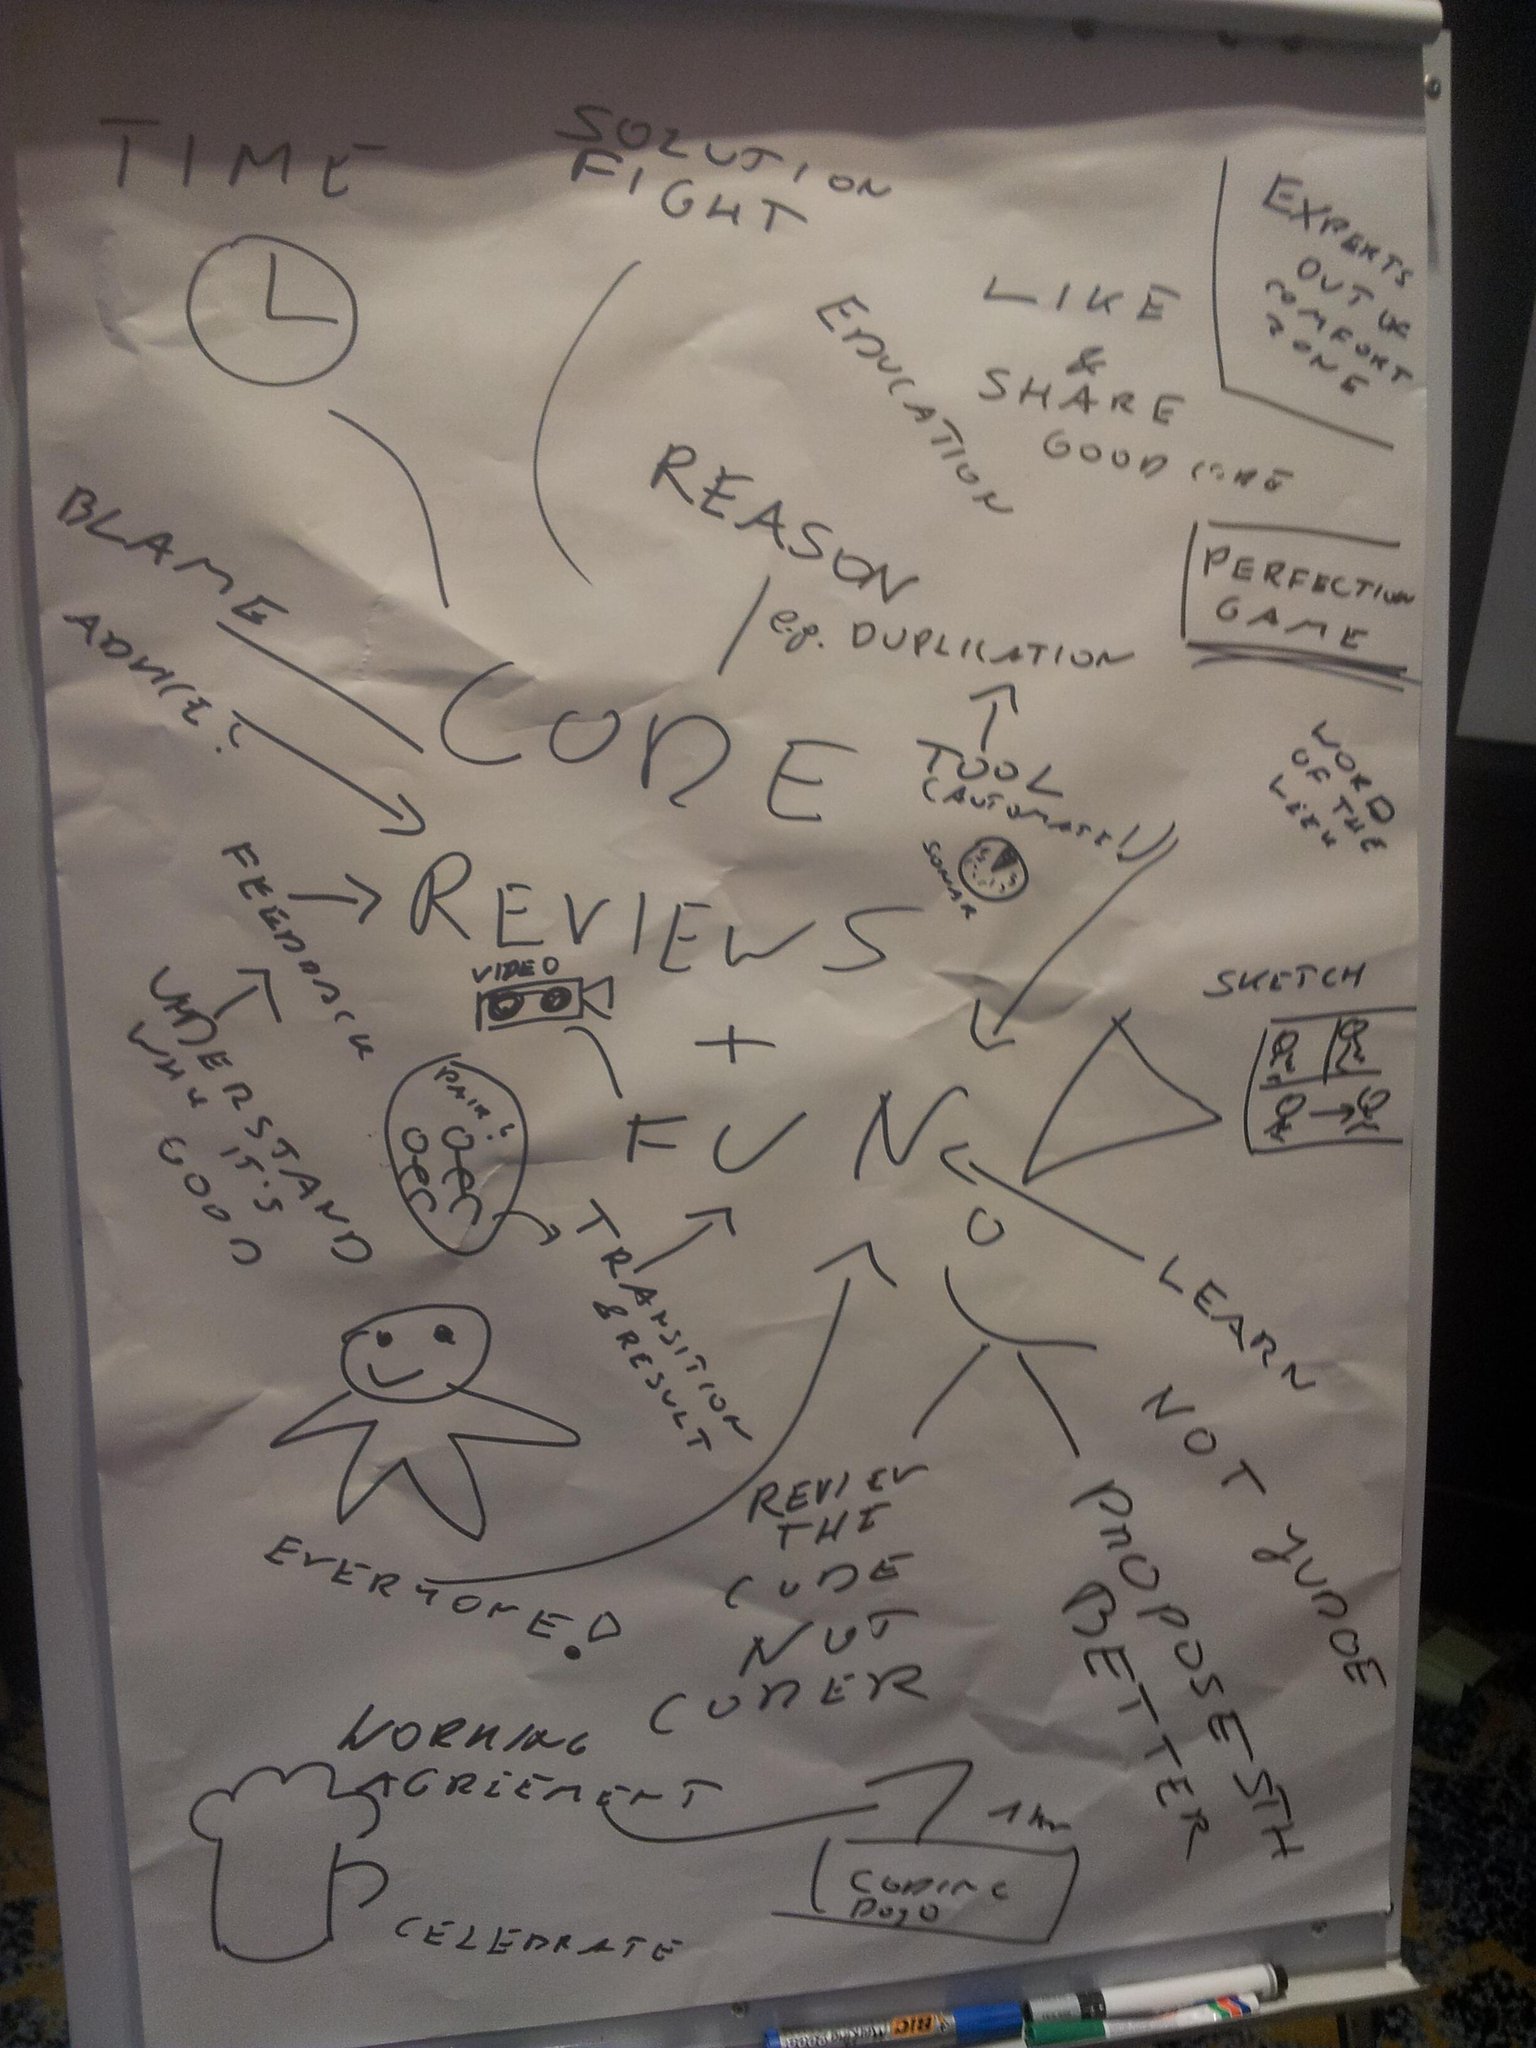 TIME
SOLUTION
FIGHT
EXPERTS
OUT OF
COMFORT
ZONE
LIKE
&
SHARE
GOOD CODE
EDUCATION
REASON
e.g. DUPLICATION
PERFECTION
GAME
BLAME
ADVICE?
CODE
TOOL
(AUTOMATE!)
SONAR
WORD
OF THE
WEEK
FEEDBACK
REVIEWS
VIDEO
+
FUN
SKETCH
UNDERSTAND
WHY IT'S
GOOD
PAIR?
TRANSITION
& RESULT
LEARN
NOT JUDGE
PROPOSE STH
BETTER
REVIEW
THE
CODE
NOT
CODER
EVERYONE!
WORKING
AGREEMENT
1 hr
CODING
DOJO
CELEBRATE
BIC